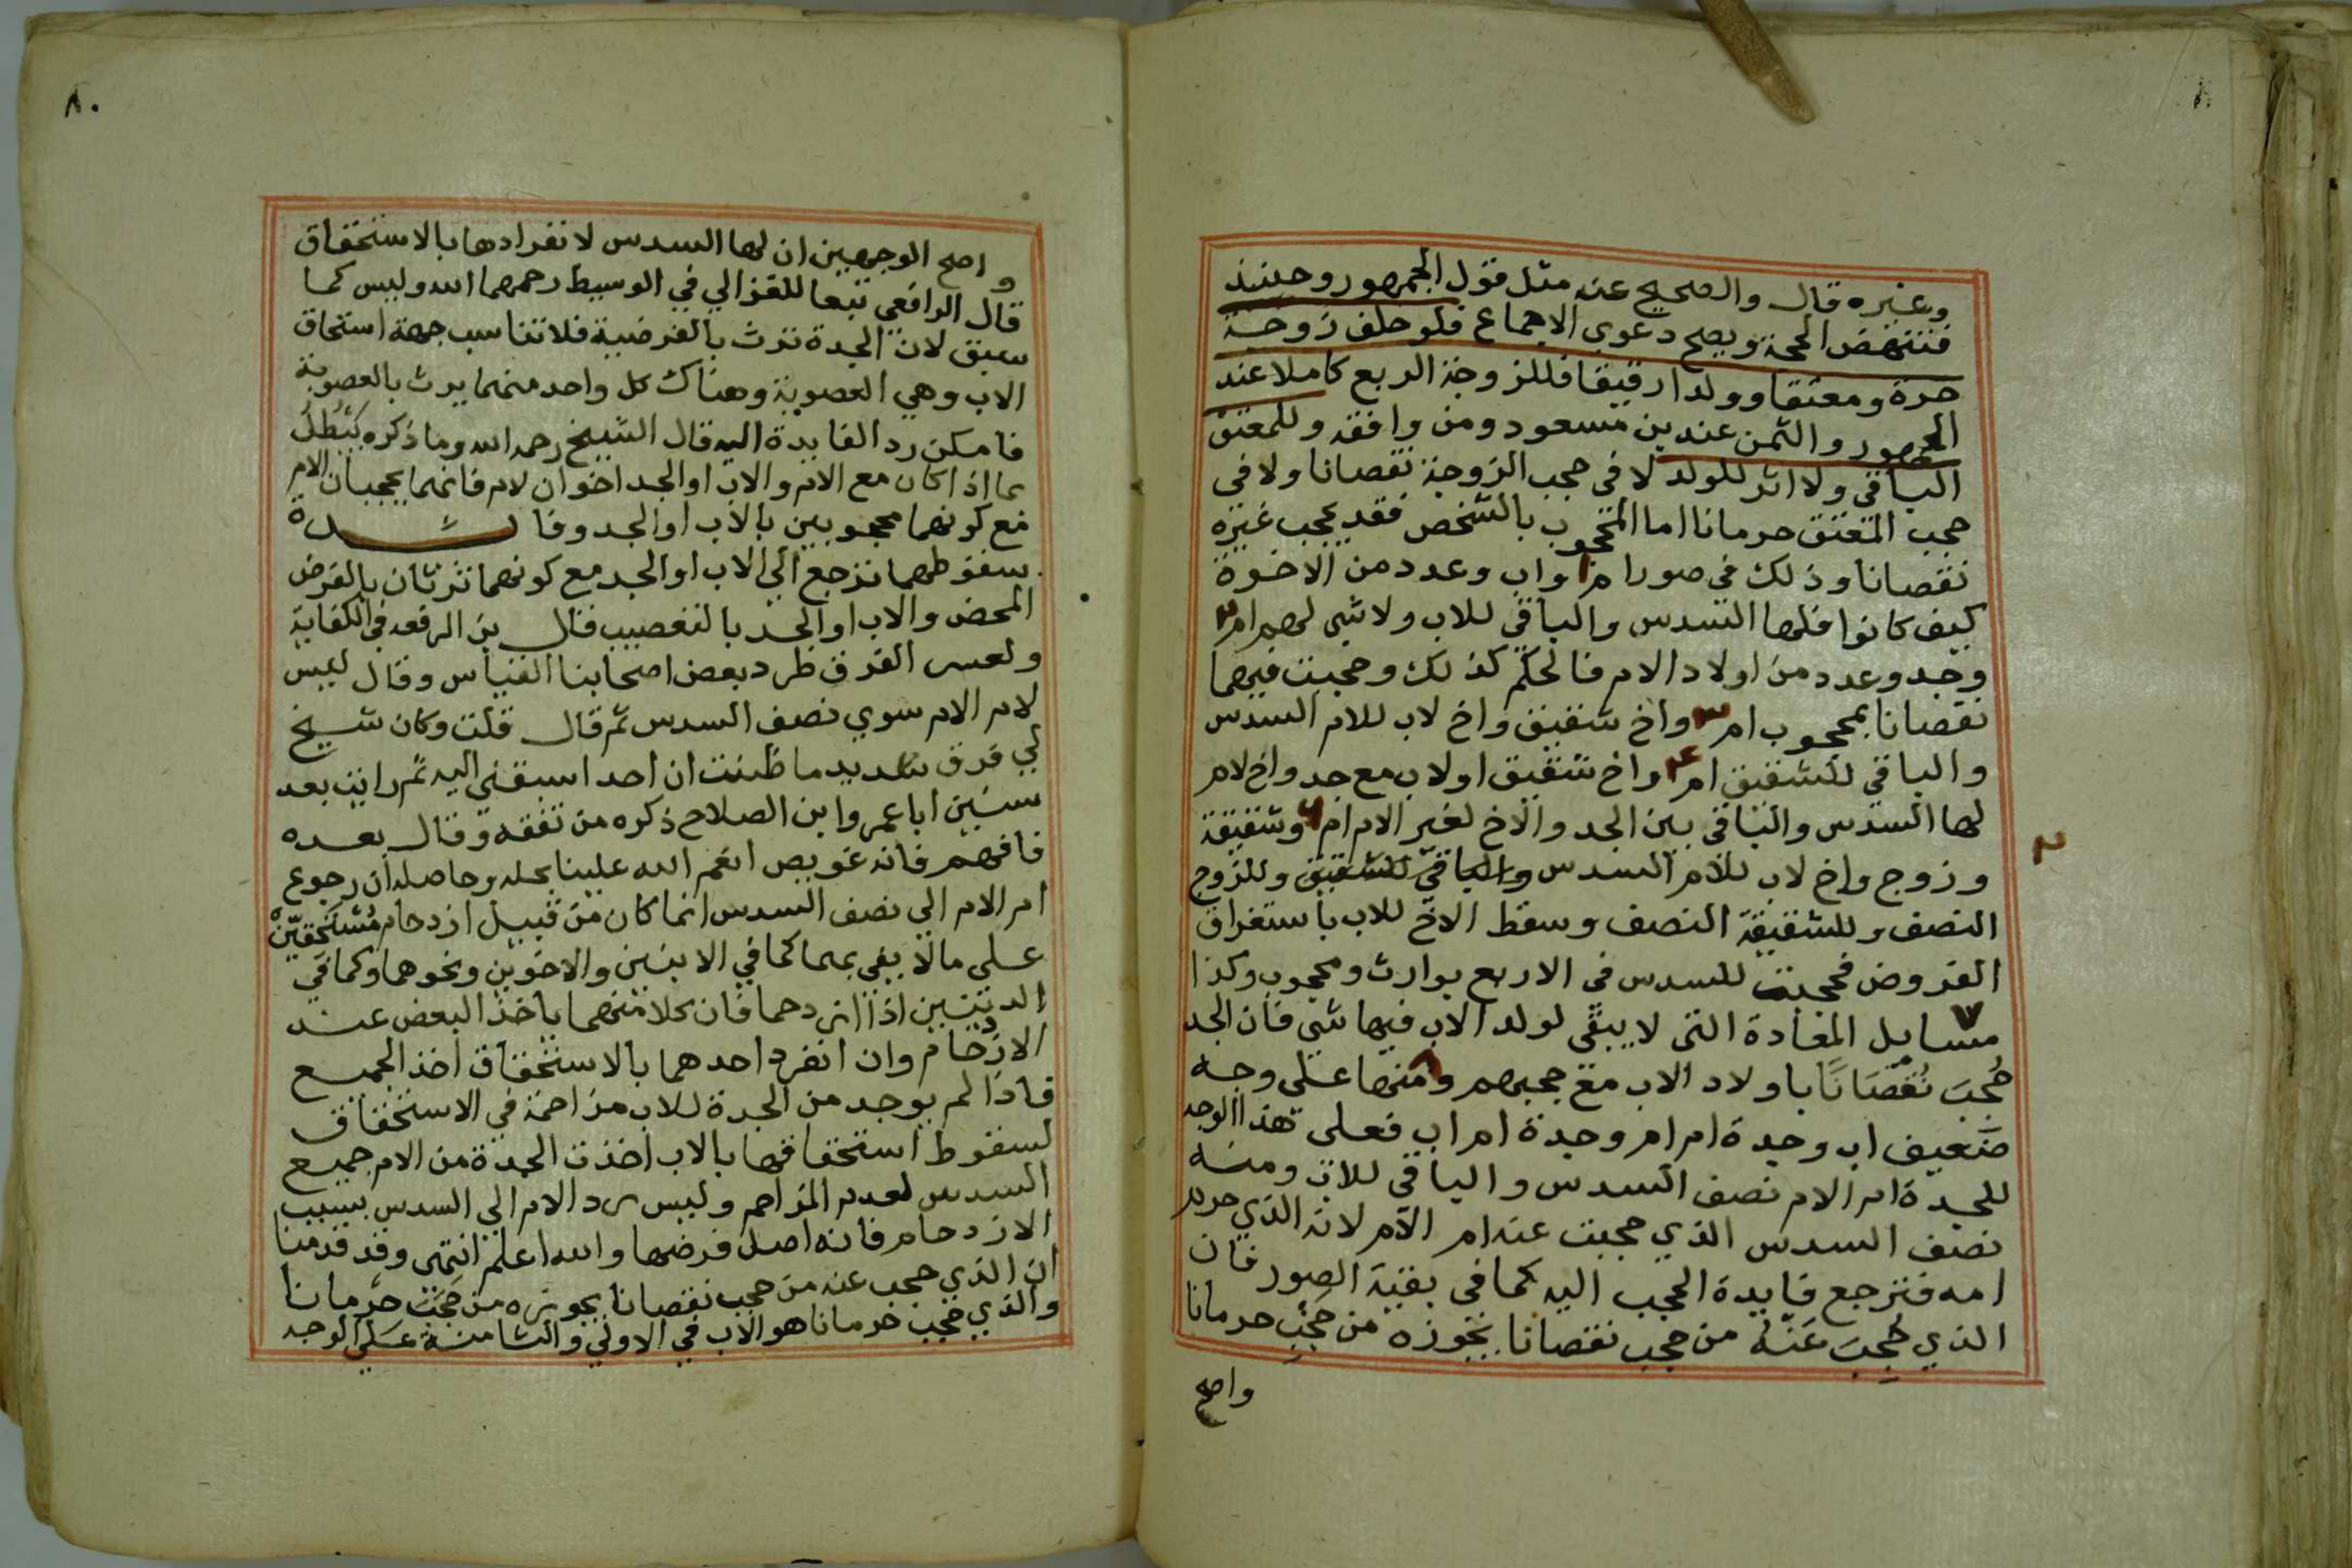 وغيره قال والصحيح عنه مثل قول الجمهور وحينئذ
فتنتهض الحجة ويصح دعوي الاجماع فلو خلف زوجة
حرة ومعتقا وولدا رقيقا فللزوجة الربع كاملا عند
الجمهور والثمن عند بن مسعود ومن وافقه وللمعتق
الباقي ولا اثر للولد لا في حجب الزوجة نقصانا ولا في
حجب المعتق حرمانا اما المحجوب بالشخص فقد يحجب غيره
نقصانا وذلك في صور ١ ام واب وعدد من الاخوة
كيف كانوا فلها السدس والباقي للاب ولا شي لهم ام ٢
وجد وعدد من اولاد الام فالحكم كذلك وحجبت فيهما
نقصانا بمحجوب ام ٣ واخ شقيق واخ لاب للام السدس
والباقي للشقيق ام ٤ واخ شقيق او لاب مع جد واخ لام
لها السدس والباقي بين الجد والاخ لغير الام ام وشقيقة
وزوج واخ لاب للام السدس والباقي للشقيق وللزوج
النصف وللشقيقة النصف وسقط الاخ للاب باستغراق
الفروض فحجبت للسدس في الاربع بوارث ومحجوب وكذا
٧ مسايل المعادة التي لا يبقي لولد الاب فيها شي فان الجد
حُجِبَ نُقْصَانًا باولاد الاب مع حجبهم ٨ ومنها علي وجه
ضعيف اب وجدة ام ام وجدة ام اب فعلي هذا الوجه
للجدة ام الام نصف السدس والباقي للاب ومنه
نصف السدس الذي حجبت عنه ام الام لانه الذي حرم
امه فترجع فايدة الحجب اليه كما في بقية الصور فان
الذي حُجِبَ عَنْهُ من حجب نقصانا يحوزه من حَجَبَ حرمانا
واصح
٨٠
واصح الوجهين ان لها السدس لانفرادها بالاستحقاق
قال الرافعي تبعا للغزالي في الوسيط رحمهما الله وليس كما
سبق لان الجدة ترث بالفرضية فلا تناسب جهة استحاق
الاب وهي العصوبة وهناك كل واحد منهما يرث بالعصوبة
فامكن رد الفايدة اليه قال الشيخ رحمه الله وما ذكروه يَبْطُلُ
بما اذا كان مع الام والاب او الجد اخوان لام فانهما يحجبان الام
مع كونهما محجوبين بالاب او الجد وفايـــدة
سقوطهما ترجع الي الاب او الجد مع كونهما يرثان بالفرض
المحض والاب او الجد بالتعصيب قال بن الرفعه في الكفاية
ولعسر الفرق طرد بعض اصحابنا القياس وقال ليس
لام الام سوي نصف السدس ثم قال قلت وكان شيخ
لي فرق سديد ما ظننت ان احدا سبقني اليه ثم رايت بعد
سنين ابا عمرو ابن الصلاح ذكره من تفقهه وقال بعده
فافهم فانه عويص انعم الله علينا بحله وحاصله ان رجوع
ام الام الي نصف السدس انما كان من قبيل ازدحام مُسْتَحِقَيْنِ
علي ما لا يفي بهما كما في الابنين والاخوين ونحوهما وكما في
الدينين اذا ازدحما فان كلا منهما ياخذ البعض عند
الازدحام وان انفرد احدهما بالاستحقاق اخذ الجميع
فاذا لم يوجد من الجدة للاب مزاحمة في الاستحقاق
لسقوط استحقاقها بالاب اخذت الجدة من الام جميع
السدس لعدم المزاحم وليس رد الام الي السدس بسبب
الازدحام فانه اصل فرضها والله اعلم انتهي وقد قدمنا
ان الذي حجب عنه من حجب نقصانا يحوزه من حَجَبَ حرمانا
والذي حجب حرمانا هو الاب في الاولي والثامنة علي الوجه